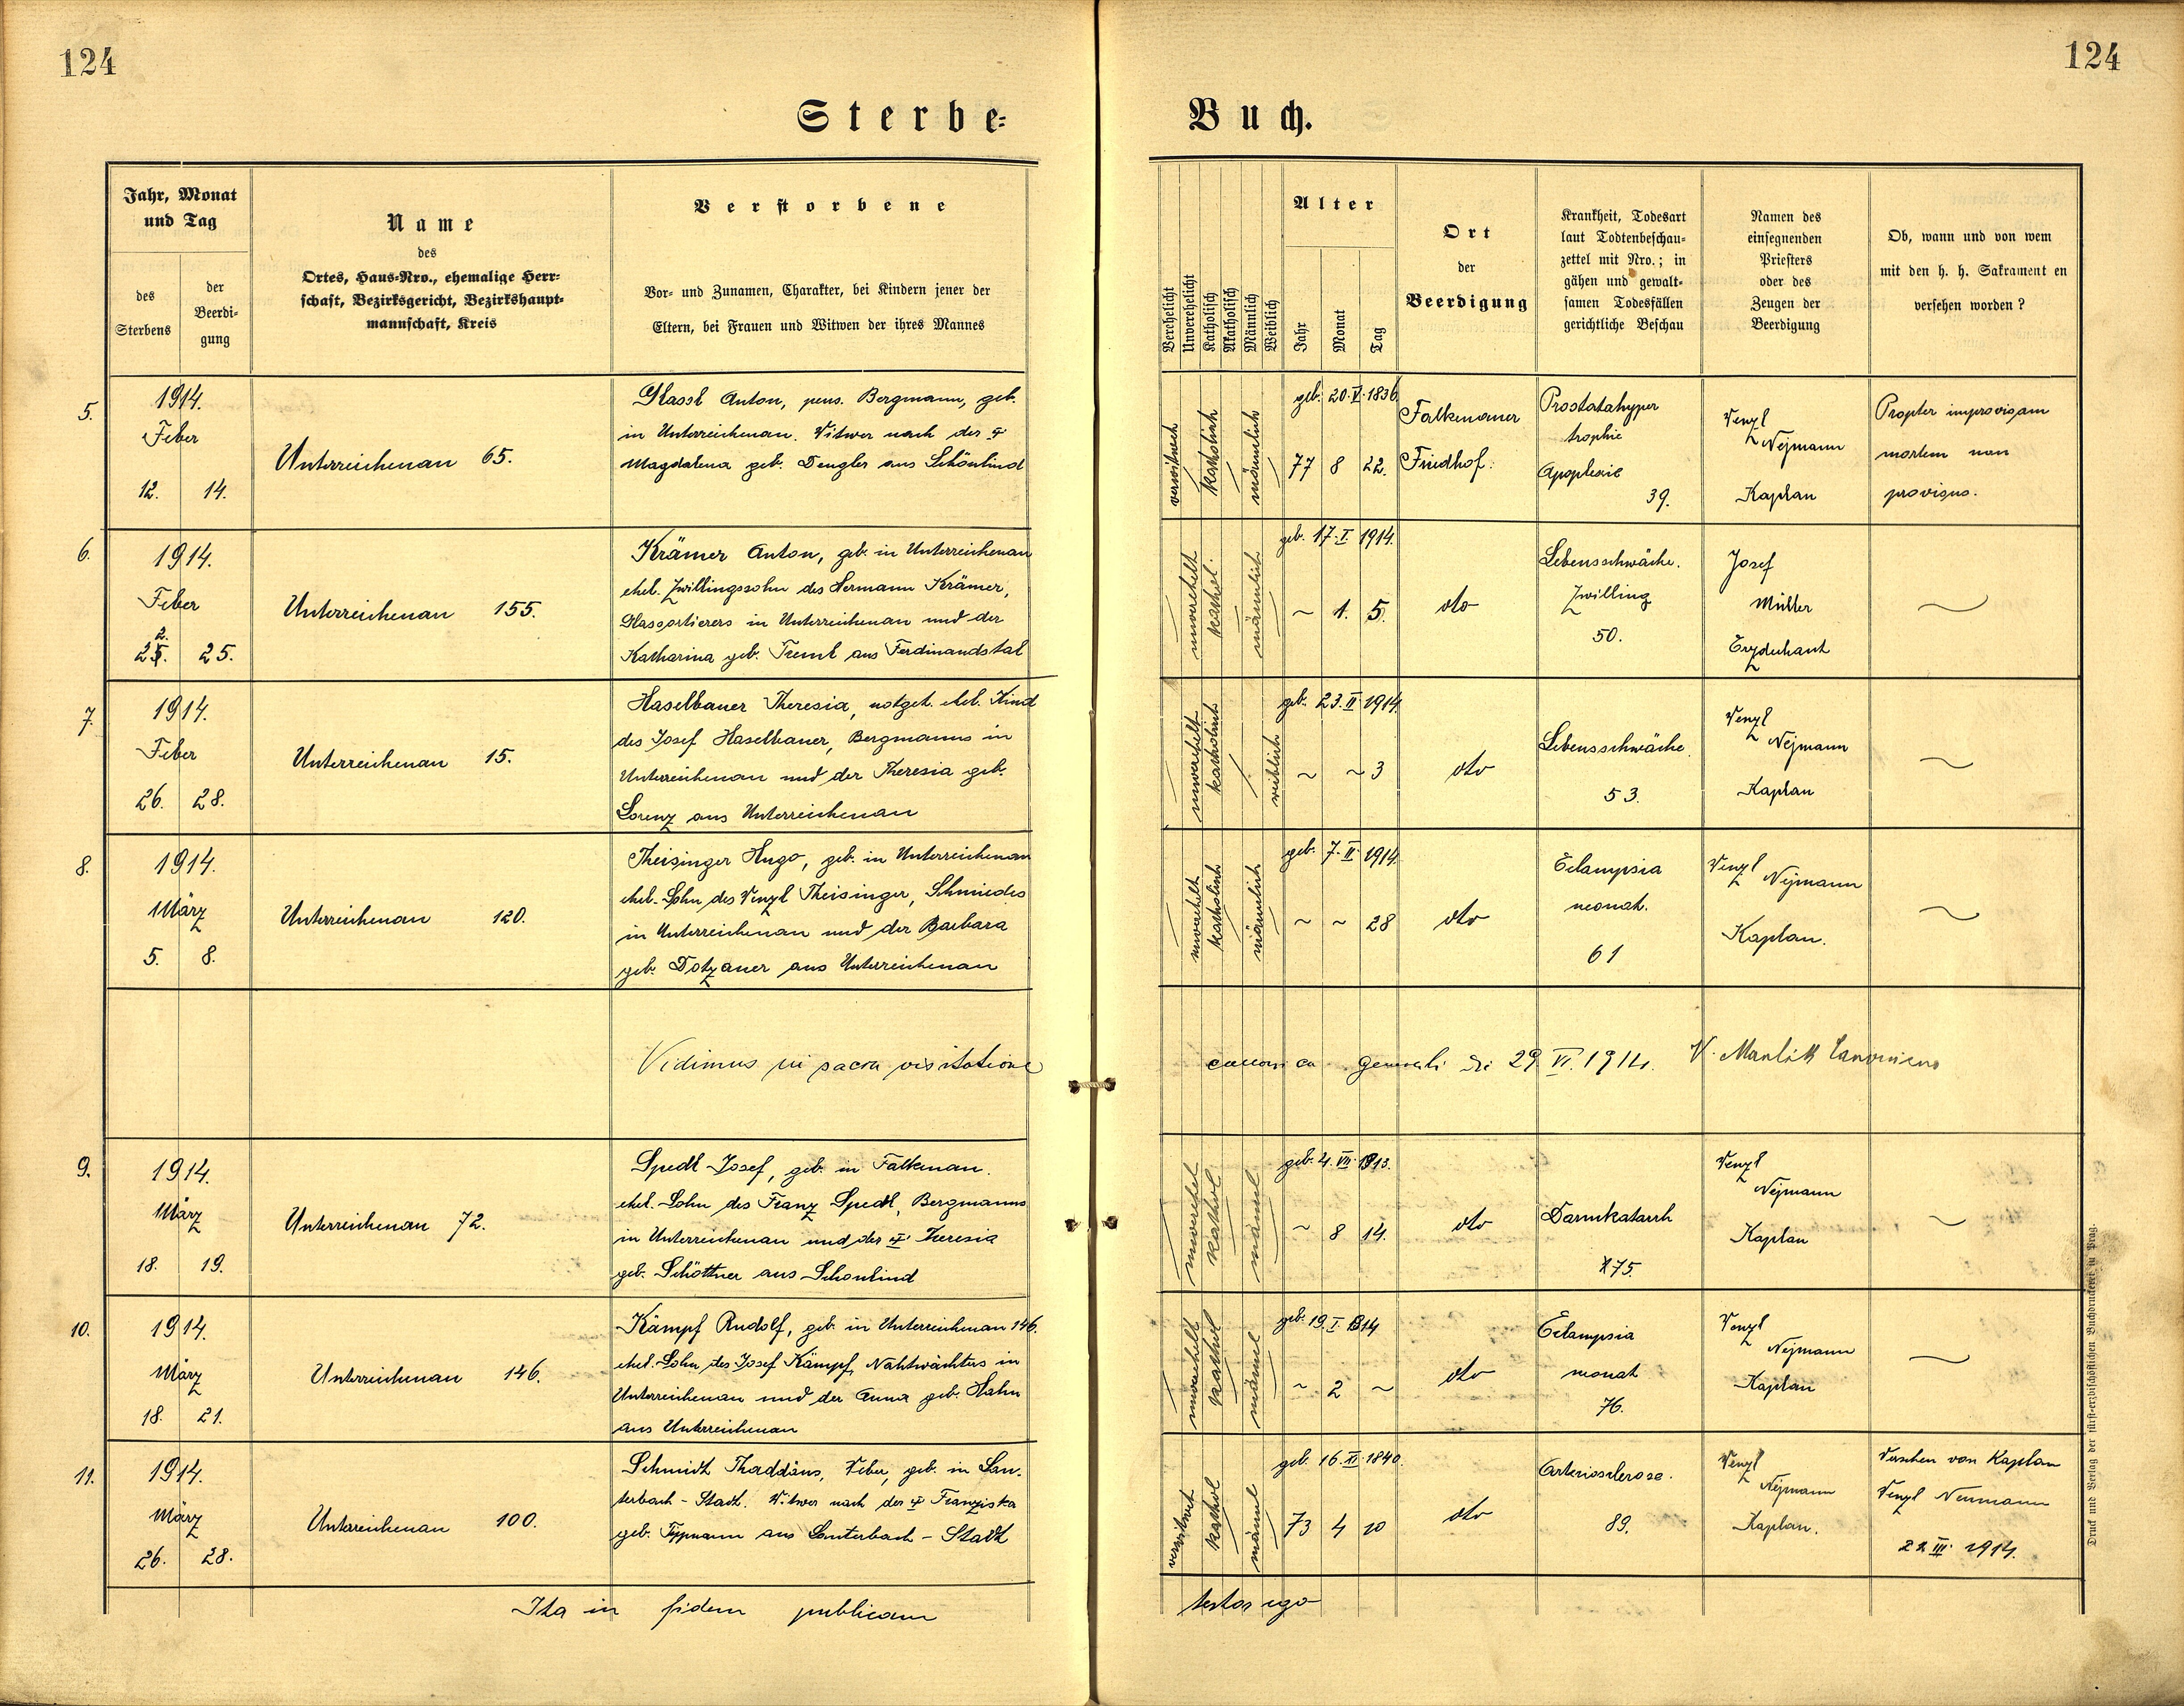 124
124
Sterbe-
Buch.
Jahr, Monat
und Tag
des
Sterbens
der
Beerdi-
gung
Name
des
Ortes, Haus-Nro., ehemalige Herr-
schaft, Bezirksgericht, Bezirkshaupt-
mannschaft, Kreis
Verstorbene
Vor- und Zunamen, Charakter, bei Kindern jener der
Eltern, bei Frauen und Witwen der ihres Mannes
Verehelicht
Unverehelicht
Katholisch
Akatholisch
Männlich
Weiblich
Alter
Jahr
Monat
Tag
Ort
der
Beerdigung
Krankheit, Todesart
laut Todtenbeschau-
zettel mit Nro.; in
gähen und gewalt-
samen Todesfällen
gerichtliche Beschau
Namen des
einsegnenden
Priesters
oder des
Zeugen der
Beerdigung
Ob, wann und von wem
mit den h. h. Sakrament en
versehen worden?
5.
1914.
Feber
12. 14.
Unterreichenau 65.
Glassl Anton, pens. Bergmann, geb.
in Unterreichenau. Witwer nach der
Magdalena geb. Dengler aus Schönlind
verwitwet
katholisch
männlich
geb. 20.V.1836.
77 8 22.
Falkenauer
Friedhof.
Prostatahyper
trophie
Apoplexie
39.
Venzl
Nejmann
Kaplan
Propter improvisam
mortem non
provisus.
6.
1914.
Feber
22. 25.
Unterreichenau 155.
Krämer Anton, geb. in Unterreichenau
ehel. Zwillingssohn des Hermann Krämer,
Glassortierers in Unterreichenau und der
Katharina geb. Treml aus Ferdinandstal
unverehelt
kathol.
männlich
geb. 17.I.1914.
~ 1. 5.
dto
Lebensschwäche.
Zwilling
50.
Josef
Müller
Erzdechant
7.
1914.
Feber
26. 28.
Unterreichenau 15.
Haselbauer Theresia, notget. ehel. Kind
des Josef Haselbauer, Bergmanns in
Unterreichenau und der Theresia geb.
Lorenz aus Unterreichenau
unverehelt
katholisch
weiblich
geb. 23.II.1914.
~ ~ 3
dto
Lebensschwäche
53.
Venzl
Nejmann
Kaplan
8.
1914.
März
5. 8.
Unterreichenau 120.
Theisinger Hugo, geb. in Unterreichenau
ehel. Sohn des Venzl Theisinger, Schmiedes
in Unterreichenau und der Barbara
geb. Dotzauer aus Unterreichenau
unverehelt
katholisch
männlich
geb. 7.II.1914.
~ ~ 28
dto
Eclampsia
neonat.
61
Venzl Nejmann
Kaplan.
Vidimus in sacra visitatione
canonica generali die 29.VI.1914. V. Manlik Canonicus
9.
1914.
März
18. 19.
Unterreichenau 72.
Spedl Josef, geb. in Falkenau.
ehel. Sohn des Franz Spedl, Bergmanns
in Unterreichenau und der Theresia
geb. Schöttner aus Schönlind
unverehel
kathol
männl
geb. 4.VII.1913.
~ 8 14.
dto
Darmkatarrh
75.
Venzl
Nejmann
Kaplan
10.
1914.
März
18. 21.
Unterreichenau 146.
Kämpf Rudolf, geb. in Unterreichenau 146.
ehel. Sohn des Josef Kämpf, Nahtwächters in
Unterreichenau und der Anna geb. Hahn
aus Unterreichenau
unverehelt
kathol
männl
geb. 19.I.1914
~ 2 ~
dto
Eclampsia
neonat
76.
Venzl
Nejmann
Kaplan
11.
1914.
März
26. 28.
Unterreichenau 100.
Schmidt Thaddäus, Weber, geb. in Lau-
terbach - Stadt. Witwer nach der Franziska
geb. Typmann aus Lauterbach - Stadt
verwitwet
kathol
männl
geb. 16.XI.1840.
73 4 10
dto
Arteriosclerose.
89.
Venzl
Nejmann
Kaplan.
Versehen von Kaplan
Venzl Neumann
22 III. 1914.
Ita in fidem publicam
testor ego
Druck und Verlag der fürst-erzbischöflichen Buchdruckerei in Prag.